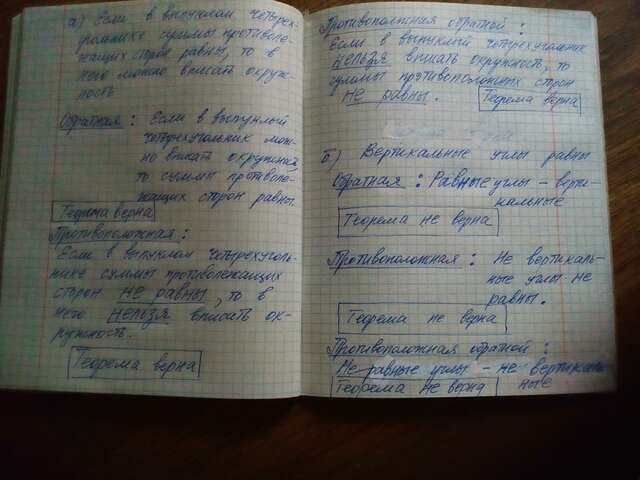 а) Если в выпуклом четырех-
угольнике суммы противопо-
лежащих сторон равны, то в
него можно вписать окруж-
ность
Обратная: Если в выпуклый
четырехугольник мож-
но вписать окружность,
то суммы противоле-
жащих сторон равны.
Теорема верна
Противоположная:
Если в выпуклом четырехуголь-
нике суммы противолежащих
сторон не равны, то в
него нельзя вписать ок-
ружность.
Теорема верна
Противоположная обратной:
Если в выпуклый четырехугольник
нельзя вписать окружность, то
суммы противоположных сторон
не равны. Теорема верна
б) Вертикальные углы равны
Обратная: Равные углы - верти-
кальные
Теорема не верна
Противоположная: Не вертикаль-
ные углы не
равны.
Теорема не верна
Противоположная обратной:
Не равные углы - не вертикаль-
Теорема не верна ные